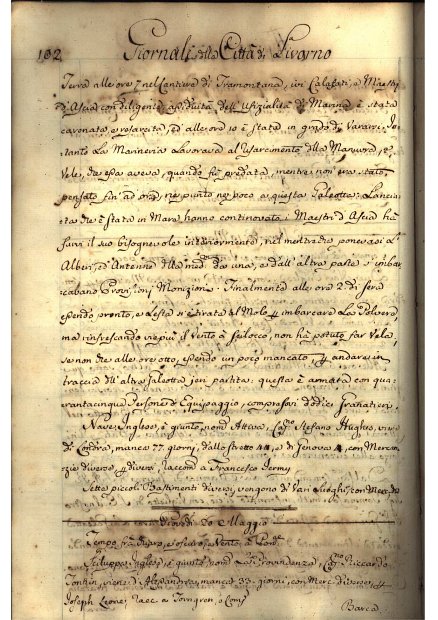 102 Giornali della Città di Livorno
Terra alle ore 7 nel Cantiere di Tramontana, i Calafati, e Maestri
d'Ascia con diligente assiduità dell' Ufizialità di Marina è stata
carenata e rosarcita, ed alle ore 10 è stata in grado di Vararsi. In
tanto La Marineria Lavorava al risarcimento della Manuvra, e
Vele, che essa aveva, quando fù predata, mentre non era stato
pensato fin' ad ora, ne punto ne poco a questa Galeotta: Lancia
ta che è stata in Mare hanno continovato i Maestri d'Ascia ha
farvi il suo bisognevole interiormente, nel mentre che ponevasi L'
Alberi, ed Antenne della med.ma da una, e dall' altra parte s' imbar
cabano Provisioni Monizioni. Finalmente alle ore 2 di sera
essendo pronto, e Lesto si è tirata al Molo p imbarcare La Polvere,
ma rinfrescando viepiù il Vento à Scilocco, non hà potuto far Vela,
se non che alle ore otto, essendo un poco mancato p andare in
traccia dell' altra Galeotta jeri partita: questa è armata con qua
rantacinque Persone d' Equipaggio, compresovi dodici Granatieri.
Nave Inglese, è giunto, nom.a Attiva, Cap.no Stefano Hughes, viene
di Londra, manca 77 giorni, dallo stretto 44, e di Genova 4, con Mercan
zie diverse p diversi, racc.ta a Francesco Jermy
Sette piccoli Bastimenti diversi, vengono di Vari Luoghi, con Mercanzie
Giovedì 20 Maggio
Tempo frà Nuvo, e Sereno, e Vento à Pon.te
Sciluppa Inglese, è giunto, nom.a La Provvidenza, Cap.no Riccardo
Tonkin, viene d' Alexandria, manca 33 giorni, con Merci diverse, p
Joseph Leone, racc.a a Torngren, e Comp.
Barca